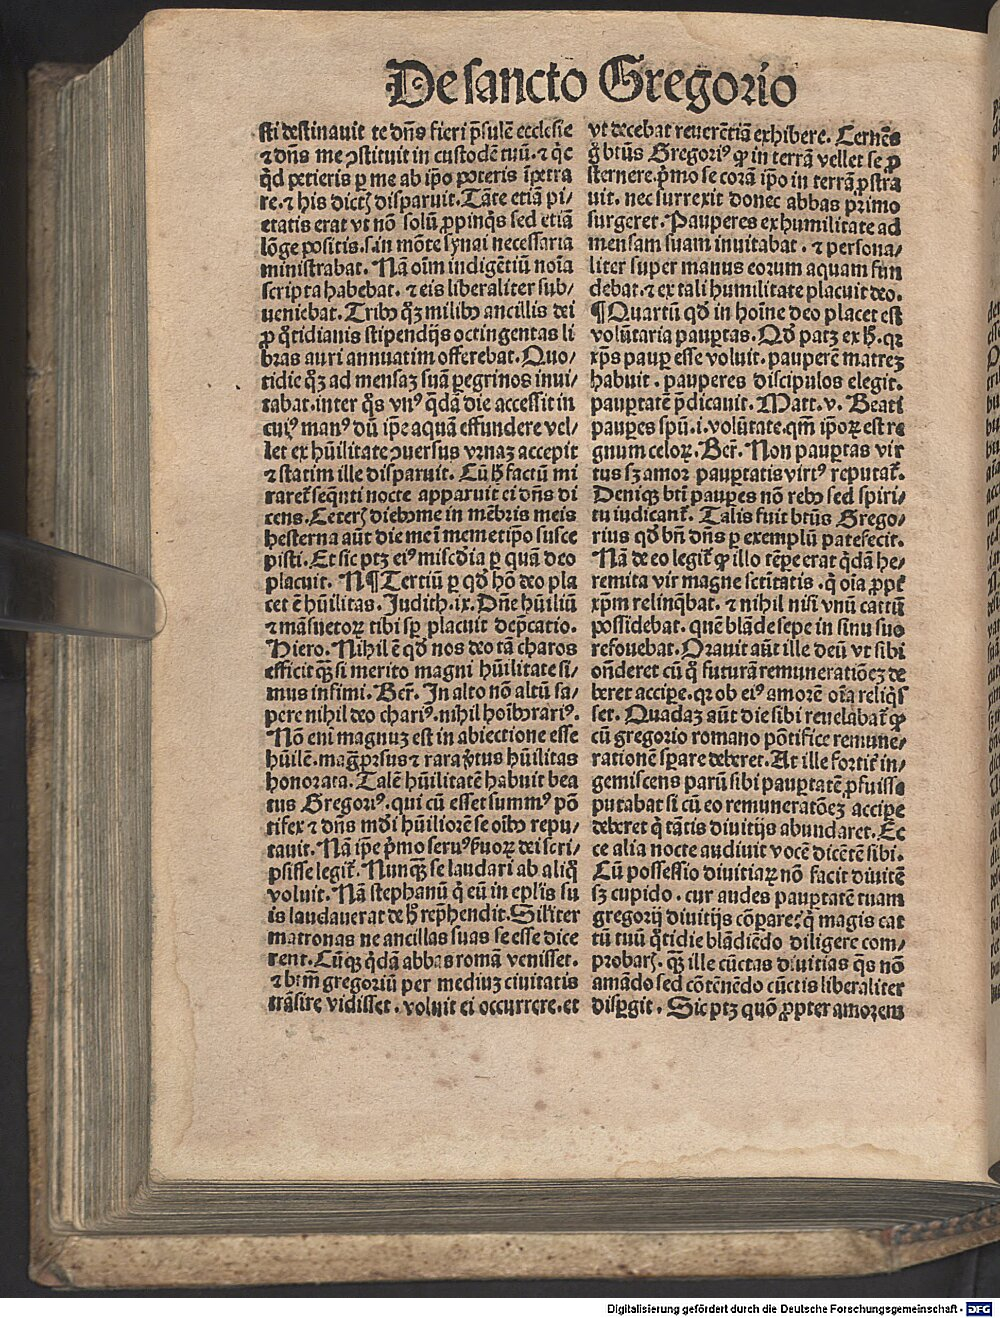 De sancto Gregorio
sti destinauit te dn̄s fieri p̄sulē ecclesie
⁊ dn̄s me ꝯstituit in custodē tuū. ⁊ qͥc
qͥd petieris ꝑ me ab ip̄o poteris īpetra
re. ⁊ his dictꝭ disparuit. Tāte etiā pi⸗
etatis erat vt nō solū ꝓpinqͦs sed etiā
lōge positis.s.in mōte synai necessaria
ministrabat. Nā oīm indigētiū noīa
scripta habebat. ⁊ eis liberaliter sub⸗
ueniebat. Tribꝰ qꝫ milibꝰ ancillis dei
ꝓ qͦtidianis stipendijs octingentas li
bras auri annuatim offerebat. Quo⸗
tidie qꝫ ad mensaꝫ suā ꝑegrinos inui⸗
tabat. inter qͦs vnꝰ qͥdā die accessit in
cuiꝰ manꝰ dū ip̄e aquā effundere vel⸗
let ex hūilitate ꝯuersus vrnaꝫ accepit
⁊ statim ille disparuit. Cū h̄ factū mi
raret᷑ seqn̄ti nocte apparuit ei dn̄s di
cens. Ceterꝭ diebꝰ me in mēbris meis
hesterna aūt die me in memetip̄o susce
pisti. Et sic ptꝫ eiꝰ mīscd̄ia ꝑ quā deo
placuit. N ¶ Tertiū ꝑ qd̄ hō deo pla
cet ē hūilitas. Judith.ix. Dn̄e hūiliū
⁊ māsuetoꝝ tibi sp̄ placuit dep̄catio.
Hiero. Nihil ē qd̄ nos deo tā charos
efficit qꝫ si merito magni hūilitate si⸗
mus infimi. Ber̄. In alto nō altū sa⸗
pere nihil deo chariꝰ. nihil hoībꝰ rariꝰ.
Nō eni magnuꝫ est in abiectione esse
hūilē. mag᷑ prsus ⁊ rara ꝟtus hūilitas
honorata. Talē hūilitatē habuit bea
tus Gregoriꝰ. qui cū esset summꝰ pō
tifex ⁊ dn̄s mōi hūiliorē se oībꝰ repu⸗
tauit. Nā ip̄e pͥmo seruꝰ ẜuoꝝ dei scri⸗
psisse legit᷑. Nunqꝫ se laudari ab aliqͦ
voluit. Nā stephanū qͥ eū in epl̄is su
is laudauerat de h̄ rep̄hendit. Sil̄iter
matronas ne ancillas suas se esse dice
rent. Cūqꝫ qͥdā abbas romā venisset.
⁊ btm̄ gregoriū per mediuꝫ ciuitatis
trāsire vidisset. voluit ei occurrere. et
vt decebat reuerētiā exhibere. Cernēs
gͦ btūs Gregoriꝰ ꝙ in terrā vellet se ꝓ
sternere. pͥmo se corā ip̄o in terrā ꝓstra
uit. nec surrexit donec abbas primo
surgeret. Pauperes ex humilitate ad
mensam suam inuitabat. ⁊ persona⸗
liter super manus eorum aquam fun
debat. ⁊ ex tali humilitate placuit deo.
¶ Quartū qd̄ in hoīne deo placet est
volūtaria pauꝑtas. Qd̄ patꝫ ex h̄. qꝛ
xp̄s pauꝑ esse voluit. pauperē matreꝫ
habuit. pauperes discipulos elegit.
pauꝑtatē p̄dicauit. Matt.v. Beati
pauꝑes spū.i.volūtate. qm̄ ip̄oꝝ est re
gnum celoꝝ. Ber̄. Non pauꝑtas vir
tus sꝫ amor pauꝑtatis virtꝰ reputat᷑.
Deniqꝫ btī pauꝑes nō rebꝰ sed spiri⸗
tu iudicant᷑. Talis fuit btūs Grego⸗
rius qd̄ bn̄ dn̄s ꝑ exemplū patefecit.
Nā de eo legit᷑ ꝙ illo tēꝑe erat qͥdā he⸗
remita vir magne sctītatis. qͥ oīa ꝓpt᷑
xp̄m relinqͥbat. ⁊ nihil nisi vnū cattū
possidebat. quē blāde sepe in sinu suo
refouebat. Orauit aūt ille deū vt sibi
on̄deret cū qͦ futurā remuneratiōeꝫ de
beret accipe. qꝛ ob eiꝰ amorē oīa reliqͥs
set. Quadaꝫ aūt die sibi reuelabat᷑ ꝙ
cū gregorio romano pōtifice remune⸗
rationē sꝑare deberet. At ille fortit᷑ in⸗
gemiscens parū sibi pauꝑtatē ꝓfuisse
putabat si cū eo remuneratōeꝫ accipe
deberet qͥ tātis diuitijs abundaret. Ec
ce alia nocte audiuit vocē dicētē sibi.
Cū possessio diuitiaꝝ nō facit diuitē
sꝫ cupido. cur audes pauꝑtatē tuam
gregorij diuitijs cōpare: qͥ magis cat
tū tuū qͦtidie blādiēdo diligere com⸗
probarꝭ. qꝫ ille cūctas diuitias qͣs nō
amādo sed cōtēnēdo cūctis liberaliter
disꝑgit. Sic ptꝫ quō ꝓpter amorem
Digitalisierung gefördert durch die Deutsche Forschungsgemeinschaft - DFG